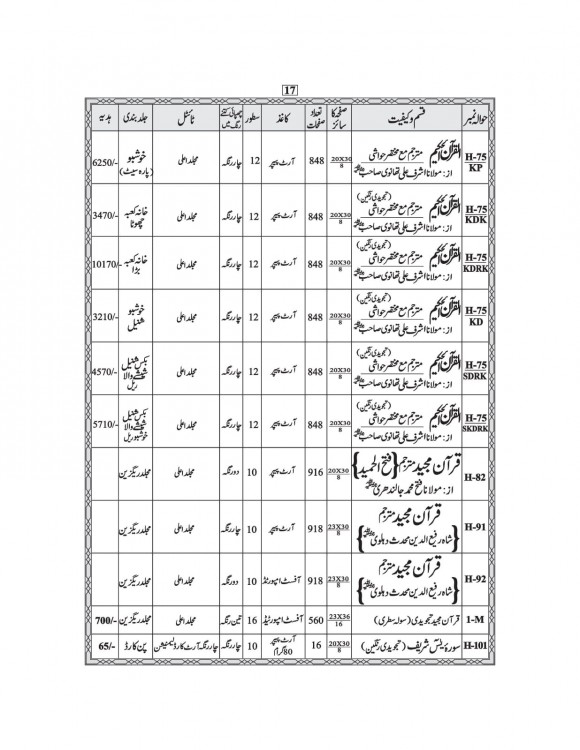 17
حوالہ نمبر قسم و کیفیت صفحہ کا سائز تعداد صفحات کاغذ سطور چھپائی کتنے رنگ میں ٹائٹل جلد بندی ہدیہ
H-75 KP القرآن الحکیم مترجم مع مختصر حواشی از: مولانا اشرف علی تھانوی صاحبؒ 20X30/8 848 آرٹ پیپر 12 چار رنگہ مجلد اعلی خوشبو (پارہ سیٹ) 6250/-
H-75 KDK القرآن الحکیم (تجویدی رنگین) مترجم مع مختصر حواشی از: مولانا اشرف علی تھانوی صاحبؒ 20X30/8 848 آرٹ پیپر 12 چار رنگہ مجلد اعلی خانہ کعبہ چھوٹا 3470/-
H-75 KDRK القرآن الحکیم (تجویدی رنگین) مترجم مع مختصر حواشی از: مولانا اشرف علی تھانوی صاحبؒ 20X30/8 848 آرٹ پیپر 12 چار رنگہ مجلد اعلی خانہ کعبہ بڑا 10170/-
H-75 KD القرآن الحکیم (تجویدی رنگین) مترجم مع مختصر حواشی از: مولانا اشرف علی تھانوی صاحبؒ 20X30/8 848 آرٹ پیپر 12 چار رنگہ مجلد اعلی خوشبو شنیل 3210/-
H-75 SDRK القرآن الحکیم (تجویدی رنگین) مترجم مع مختصر حواشی از: مولانا اشرف علی تھانوی صاحبؒ 20X30/8 848 آرٹ پیپر 12 چار رنگہ مجلد اعلی بکس شنیل شیشے والا ریل 4570/-
H-75 SKDRK القرآن الحکیم (تجویدی رنگین) مترجم مع مختصر حواشی از: مولانا اشرف علی تھانوی صاحبؒ 20X30/8 848 آرٹ پیپر 12 چار رنگہ مجلد اعلی بکس شنیل شیشے والا خوشبو ریل 5710/-
H-82 قرآن مجید مترجم {فتح الحمید} از: مولانا فتح محمد جالندھریؒ 20X30/8 916 آرٹ پیپر 10 دو رنگہ مجلد اعلی مجلد ریگزین
H-91 قرآن مجید مترجم {شاہ رفیع الدین محدث دہلویؒ} 23X30/8 918 آرٹ پیپر 10 چار رنگہ مجلد اعلی مجلد ریگزین
H-92 قرآن مجید مترجم {شاہ رفیع الدین محدث دہلویؒ} 23X30/8 918 آفسٹ امپورٹڈ 10 دو رنگہ مجلد اعلی مجلد ریگزین
1-M قرآن مجید تجویدی (سولہ سطری) 23X36/16 560 آفسٹ امپورٹیڈ 16 تین رنگہ مجلد اعلی مجلد ریگزین 700/-
H-101 سورۂ یٰسٓ شریف (تجویدی رنگین) 20X30/8 16 آرٹ پیپر 80 گرام 10 چار رنگہ چار رنگہ آرٹ کارڈ لیمنیشن پن کارڈ 65/-